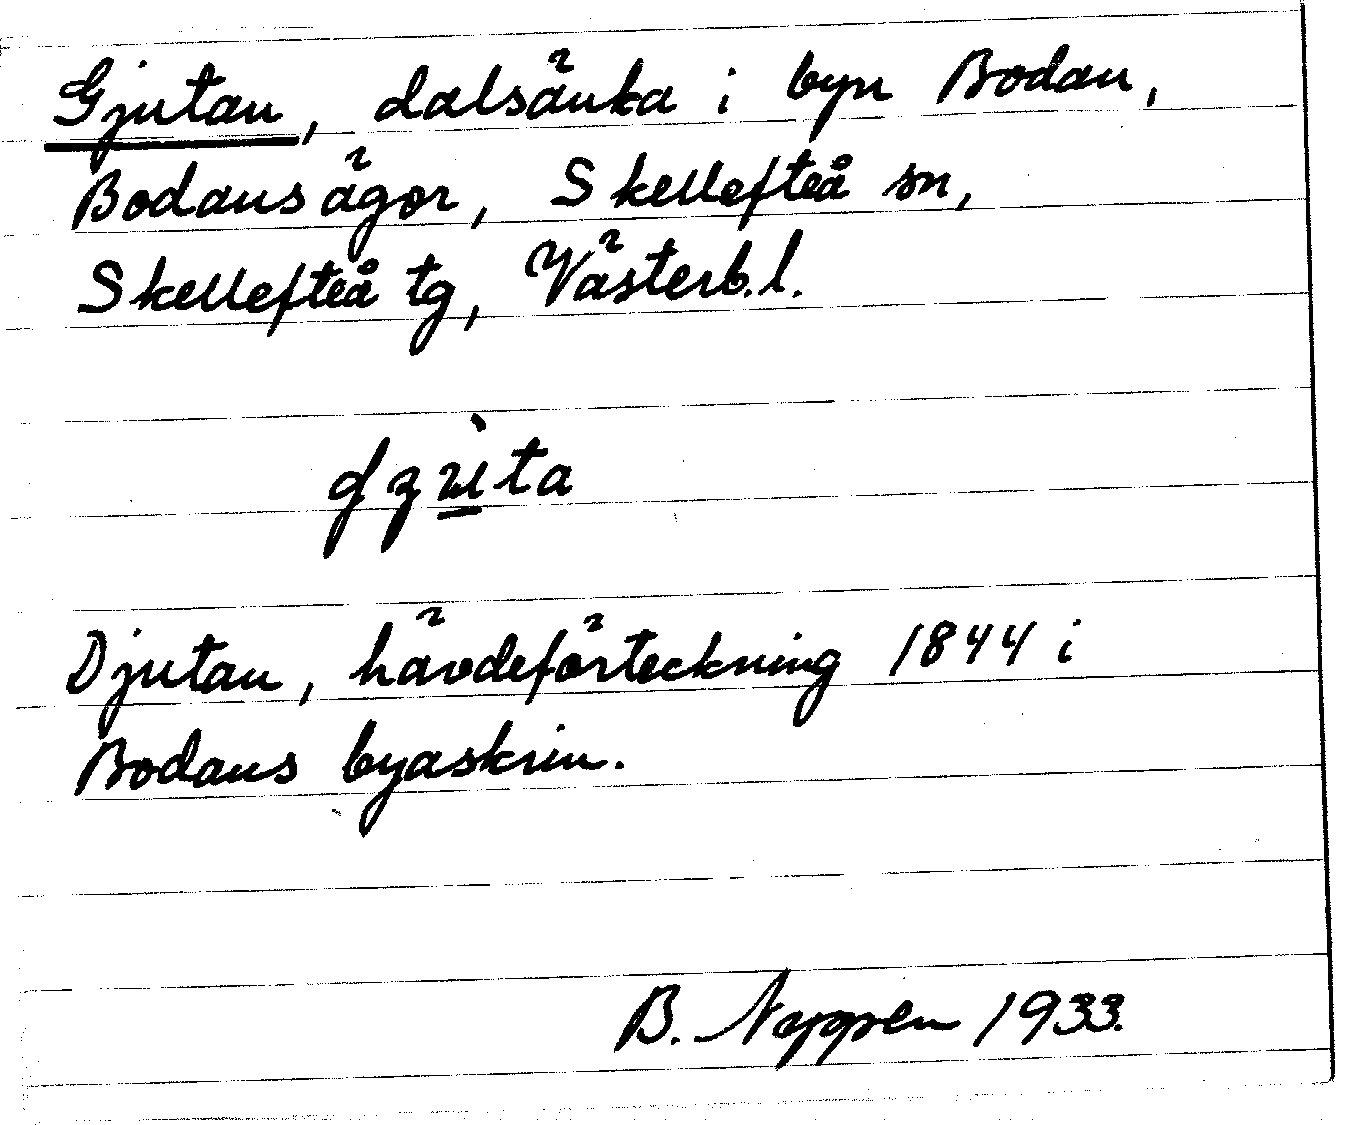 Gjutan, dalsänka i byn Bodan,
Bodans ägor, Skellefteå sn,
Skellefteå tg, Västerb.l.
Djutan, hävdeförteckning 1844 i
Bodans byaskrin.
B. 1933.